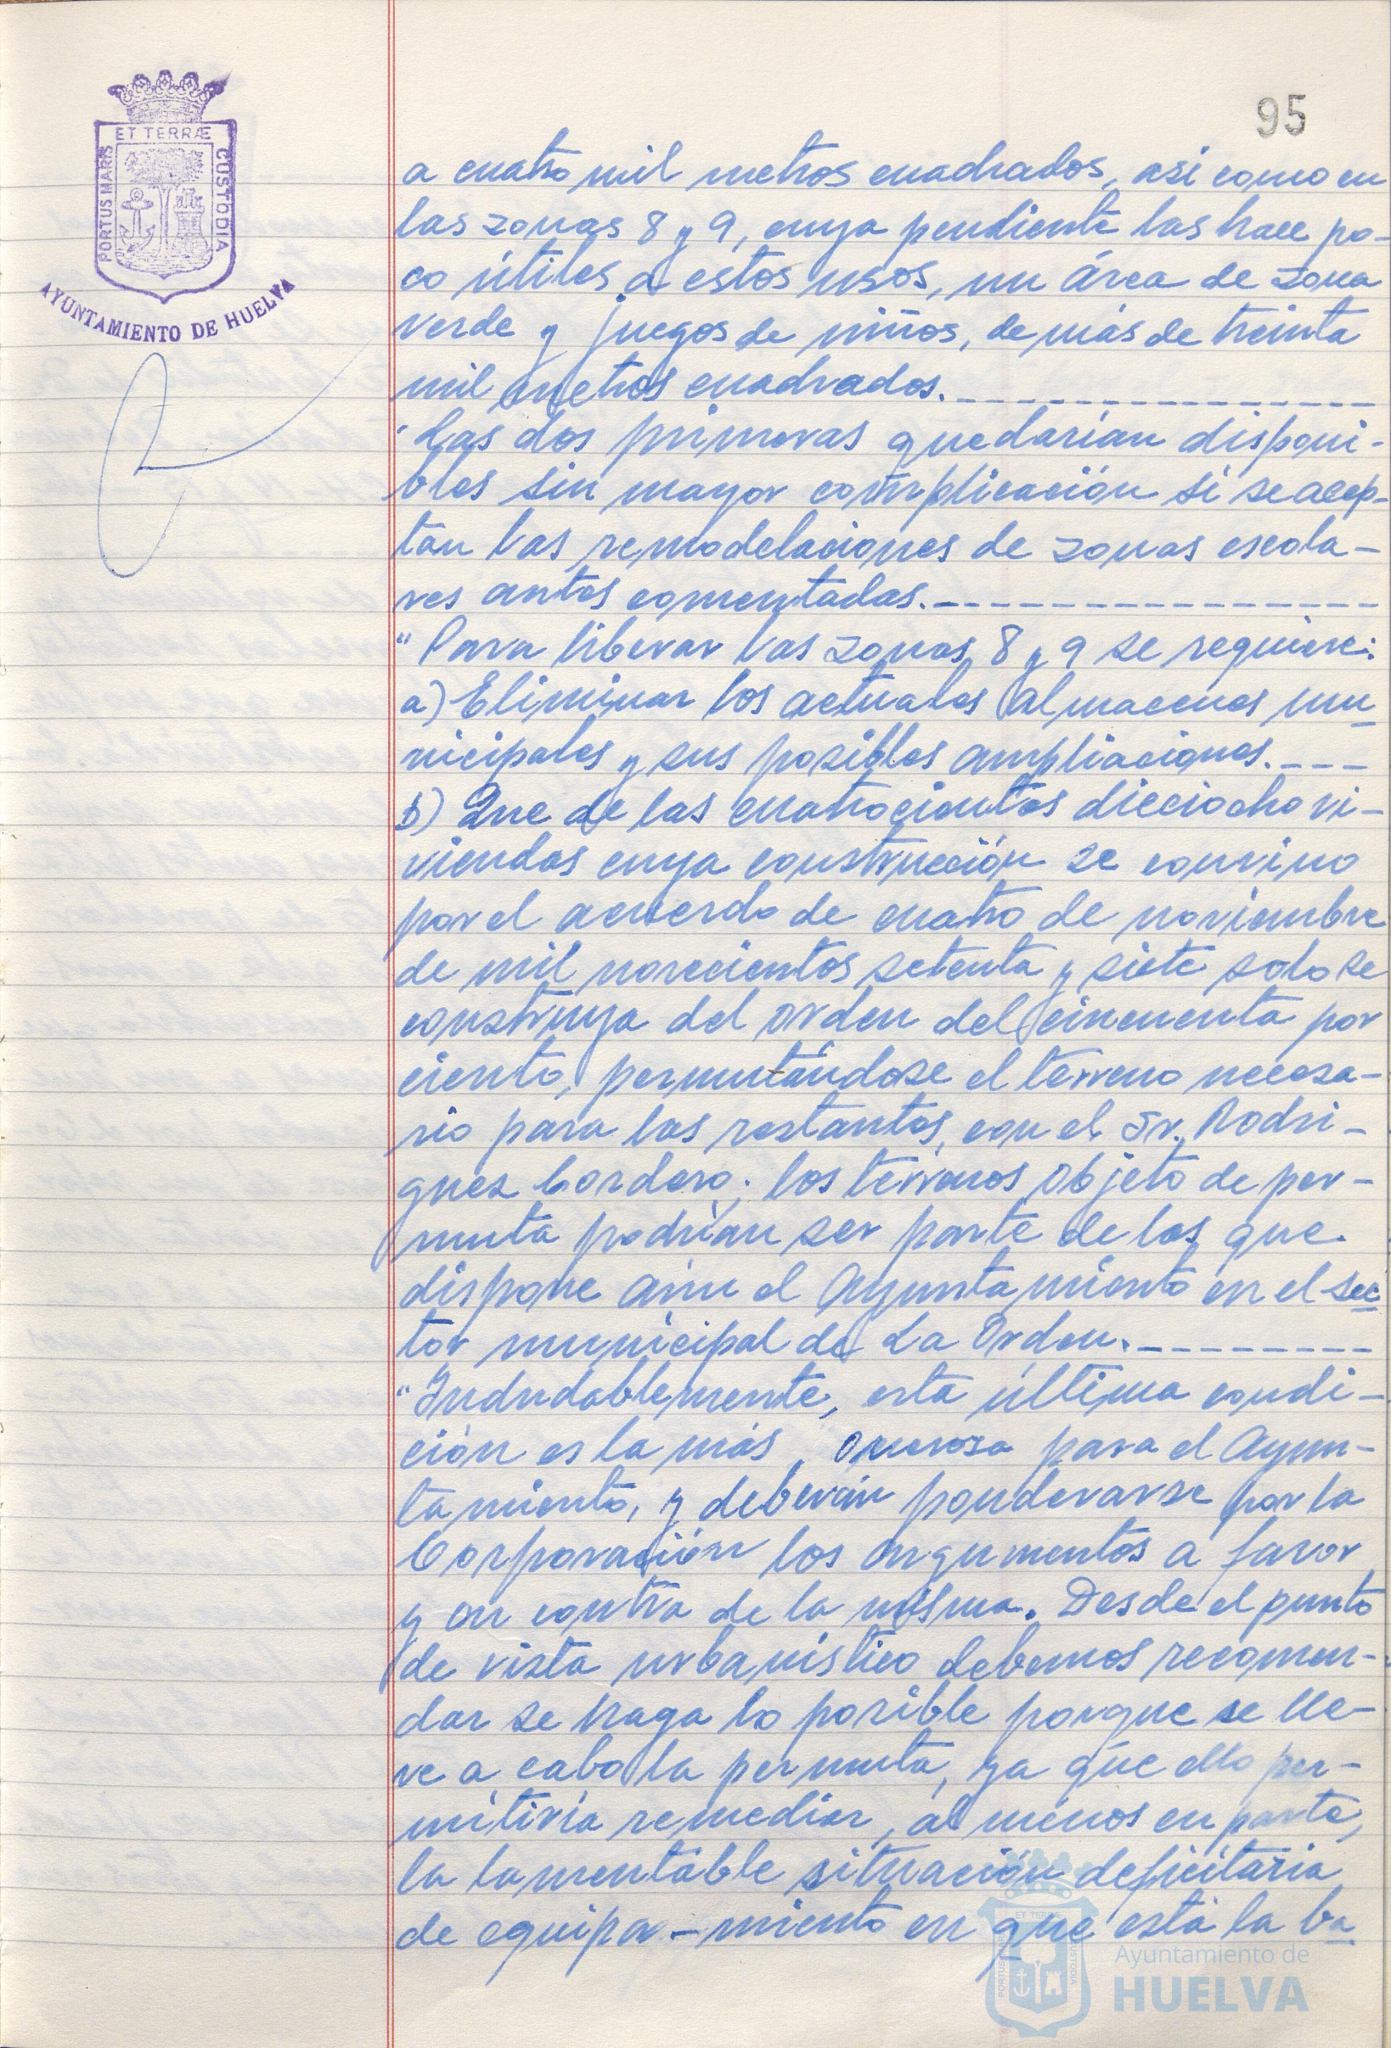 95
ET TERRÆ
PORTUS MARIS
CUSTODIA
AYUNTAMIENTO DE HUELVA
a cuatro mil metros cuadrados, asi como en
las zonas 8 y 9, cuya pendiente las hace po-
co útiles a estos usos, un área de zona
verde y juegos de niños, de más de treinta
mil metros cuadrados.
"Las dos primeras quedarían disponi-
bles sin mayor complicación si se acep-
tan las remodelaciones de zonas escola-
res antes comentadas.
"Para liberar las zonas 8 y 9 se requiere:
a) Eliminar los actuales almacenes mu-
nicipales y sus posibles ampliaciones.
b) Que de las cuatrocientas dieciocho vi-
viendas cuya construcción se convino
por el acuerdo de cuatro de noviembre
de mil novecientos setenta y siete solo se
construya del orden del cincuenta por
ciento, permutándose el terreno necesa-
rio para las restantes, con el Sr. Rodri-
guez Cordero; los terrenos objeto de per-
muta podrían ser parte de los que
dispone aún el Ayuntamiento en el sec
tor municipal de La Orden.
"Indudablemente, esta última condi-
ción es la más onerosa para el Ayun-
tamiento, y deberán ponderarse por la
Corporación los argumentos a favor
y en contra de la misma. Desde el punto
de vista urbanístico debemos recomen-
dar se haga lo posible porque se lle-
ve a cabo la permuta, ya que ello per-
mitiría remediar, al menos en parte,
la lamentable situación deficitaria
de equipa-miento en que está la ba
ET TERRÆ
PORTUS
CUSTODIA
Ayuntamiento de
HUELVA